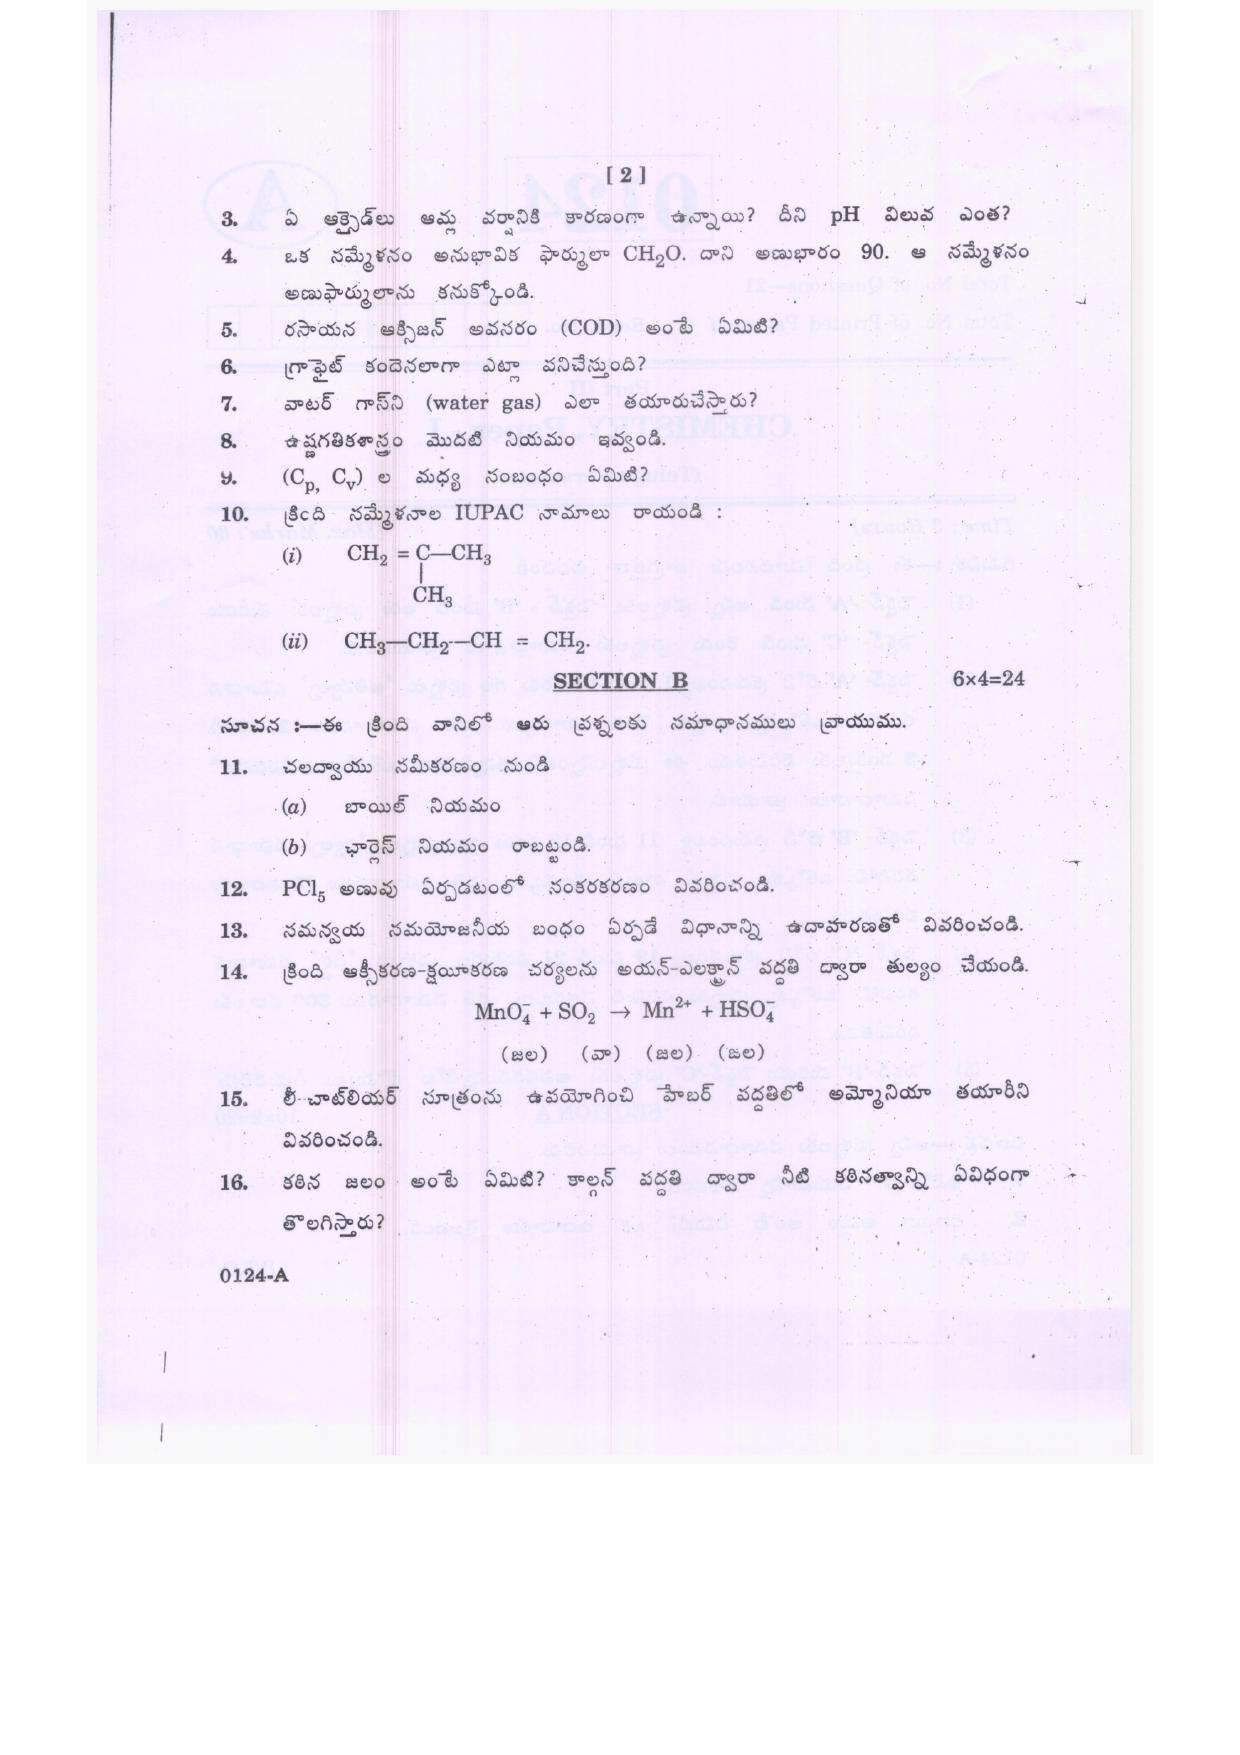 [ 2 ]
3. ఏ ఆక్సైడ్‌లు ఆమ్ల వర్షానికి కారణంగా ఉన్నాయి? దీని pH విలువ ఎంత?
4. ఒక సమ్మేళనం అనుభావిక ఫార్ములా CH₂O. దాని అణుభారం 90. ఆ సమ్మేళనం
అణుఫార్ములాను కనుక్కోండి.
5. రసాయన ఆక్సిజన్ అవసరం (COD) అంటే ఏమిటి?
6. గ్రాఫైట్ కందెనలాగా ఎట్లా పనిచేస్తుంది?
7. వాటర్ గాస్‌ని (water gas) ఎలా తయారుచేస్తారు?
8. ఉష్ణగతికశాస్త్రం మొదటి నియమం ఇవ్వండి.
9. (Cp, Cv) ల మధ్య సంబంధం ఏమిటి?
10. క్రింది సమ్మేళనాల IUPAC నామాలు రాయండి :
(i) CH₂ = C—CH₃
|
CH₃
(ii) CH₃—CH₂—CH = CH₂.
SECTION B 6×4=24
సూచన :—ఈ క్రింది వానిలో ఆరు ప్రశ్నలకు సమాధానములు వ్రాయుము.
11. చలద్వాయు సమీకరణం నుండి
(a) బాయిల్ నియమం
(b) ఛార్లెస్ నియమం రాబట్టండి.
12. PCl₅ అణువు ఏర్పడటంలో సంకరకరణం వివరించండి.
13. సమన్వయ సమయోజనీయ బంధం ఏర్పడే విధానాన్ని ఉదాహరణతో వివరించండి.
14. క్రింది ఆక్సీకరణ-క్షయీకరణ చర్యలను అయన్-ఎలక్ట్రాన్ పద్ధతి ద్వారా తుల్యం చేయండి.
MnO₄⁻ + SO₂ → Mn²⁺ + HSO₄⁻
(జల) (వా) (జల) (జల)
15. లీ చాట్‌లియర్ సూత్రంను ఉపయోగించి హేబర్ పద్ధతిలో అమ్మోనియా తయారీని
వివరించండి.
16. కఠిన జలం అంటే ఏమిటి? కాల్గన్ పద్ధతి ద్వారా నీటి కఠినత్వాన్ని ఏవిధంగా
తొలగిస్తారు?
0124-A